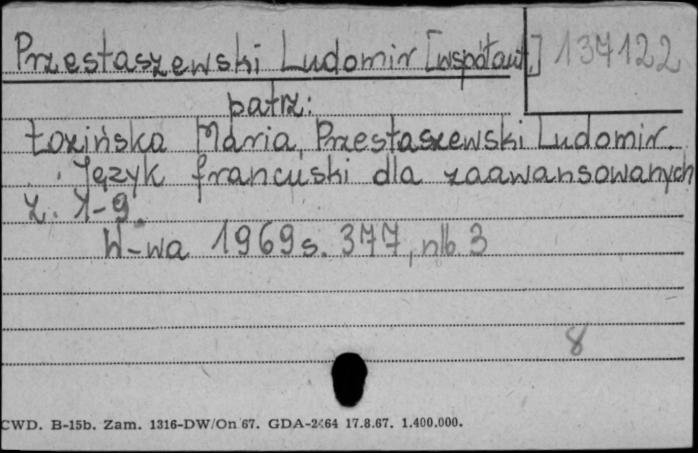 Przestaszewski Ludomir [współaut.] 137122
patrz:
Łozińska Maria, Przestaszewski Ludomir.
Język francuski dla zaawansowanych
Z. 1-9.
W-wa 1969 s. 377, nlb 3
8
CWD. B-15b. Zam. 1316-DW/On 67. GDA-2464 17.8.67. 1.400.000.